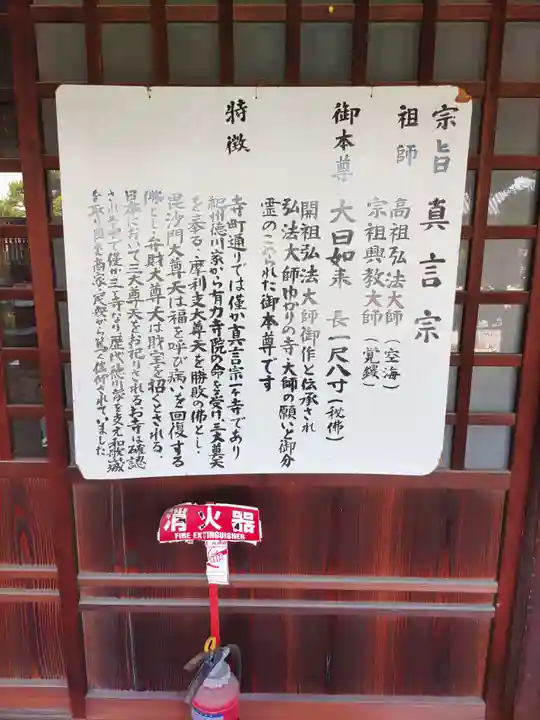 宗旨 真言宗
祖師 高祖弘法大師(空海)
宗祖興教大師(覚鑁)
御本尊 大日如来 長一尺八寸(秘佛)
開祖弘法大師御作と伝承され
弘法大師ゆかりの寺・大師の願いと御分
霊のこめられた御本尊です
特徴
寺町通りでは僅か真言宗一ヶ寺であり
紀州徳川家から有力寺院の命を受け、三大尊天
を奉る・摩利支大尊天を勝敗の佛とし・
毘沙門大尊天は福を呼び病いを回復する
佛とし・弁財大尊天は財宝を招くとされる・
日本において三大尊天をお祀りされるお寺は確認
され中で僅か三ヶ寺なり歴代徳川家を支え和歌山城
を取り巻き商家・民衆から篤く信仰されていました
消火器
FIRE EXTINGUISHER